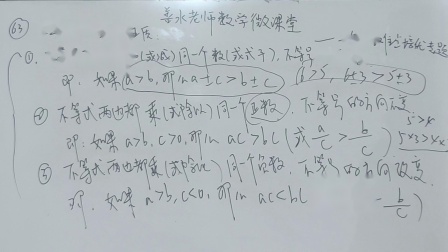 善水老师数学微课堂
63
①
(或减)同一个数(或式子),不等号
即:如果a>b,那么a±c>b±c 6>5, 6±3>5±3
② 不等式两边都乘(或除以)同一个正数,不等号的方向不变
即:如果a>b,c>0,那么ac>bc(或a/c>b/c)
③ 不等式两边都乘(或除以)同一个负数,不等号的方向改变
即:如果a>b,c<0,那么ac<bc b/c)